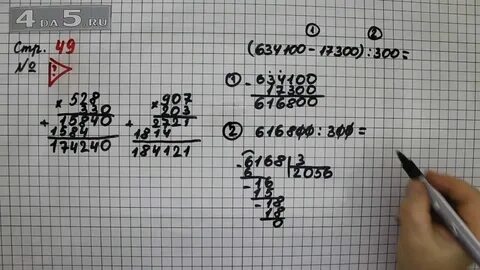 4DA5.RU
Стр. 49
№ ?
× 528
330
+ 15840
1584
174240
× 907
203
+ 2721
1814
184121
① ②
(634100 - 17300) : 300 =
① - 634100
17300
616800
② 616800 : 300 =
- 6168 | 3
6 | 2056
- 16
15
- 18
18
0